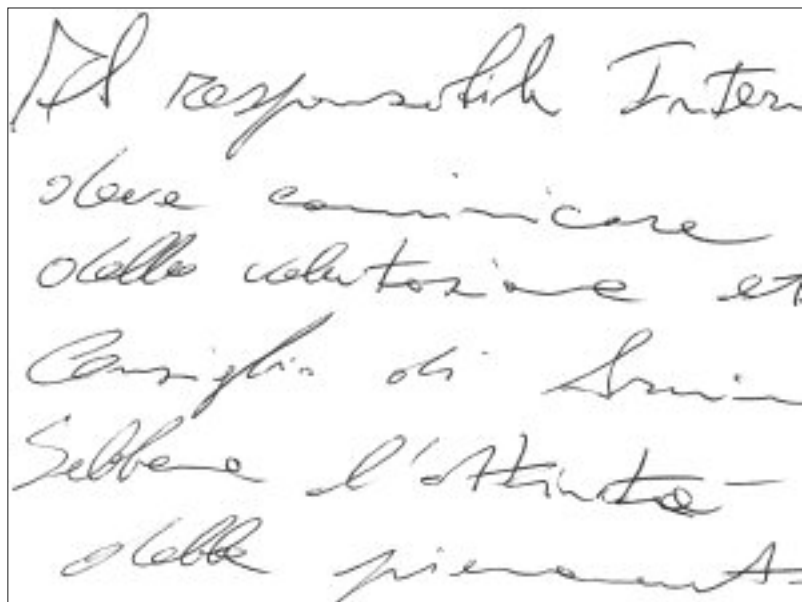 Il responsabile Intern
deve comunicare
della valutazione et
Consiglio di Ammin
Sebbene l'attività
debba pienament